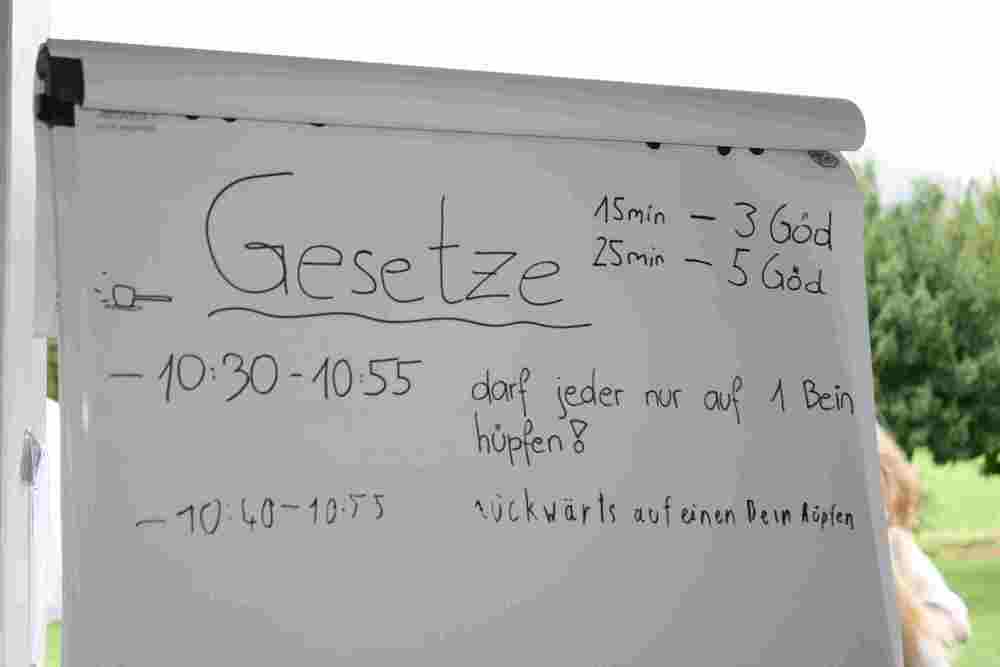 Gesetze
15min – 3 Göd
25min – 5 Göd
– 10:30 - 10:55 darf jeder nur auf 1 Bein
hüpfen!
– 10:40 – 10:55 rückwärts auf einen Bein hüpfen